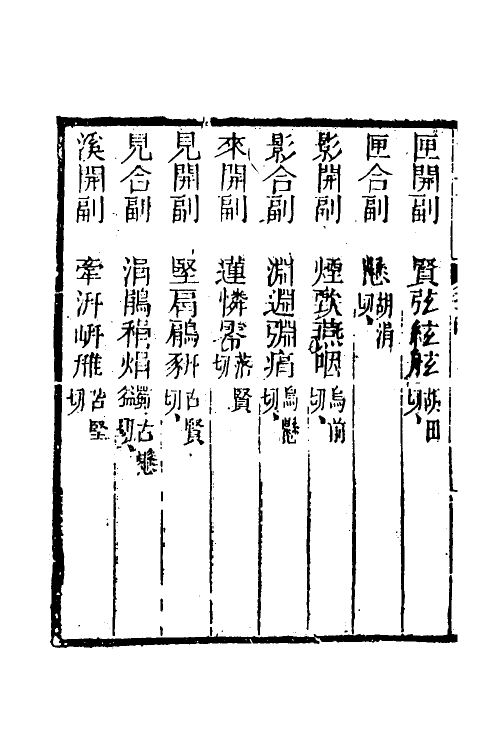 匣開副　賢弦絃舷胡田切
匣合副　懸胡涓切
影開副　煙歅燕咽烏前切
影合副　淵弲烏懸切
來開副　蓮憐落賢切
見開副　堅肩鵳豜幵古賢切
見合副　涓鵑焆蠲古懸切
溪開副　牽汧岍雃苦堅切